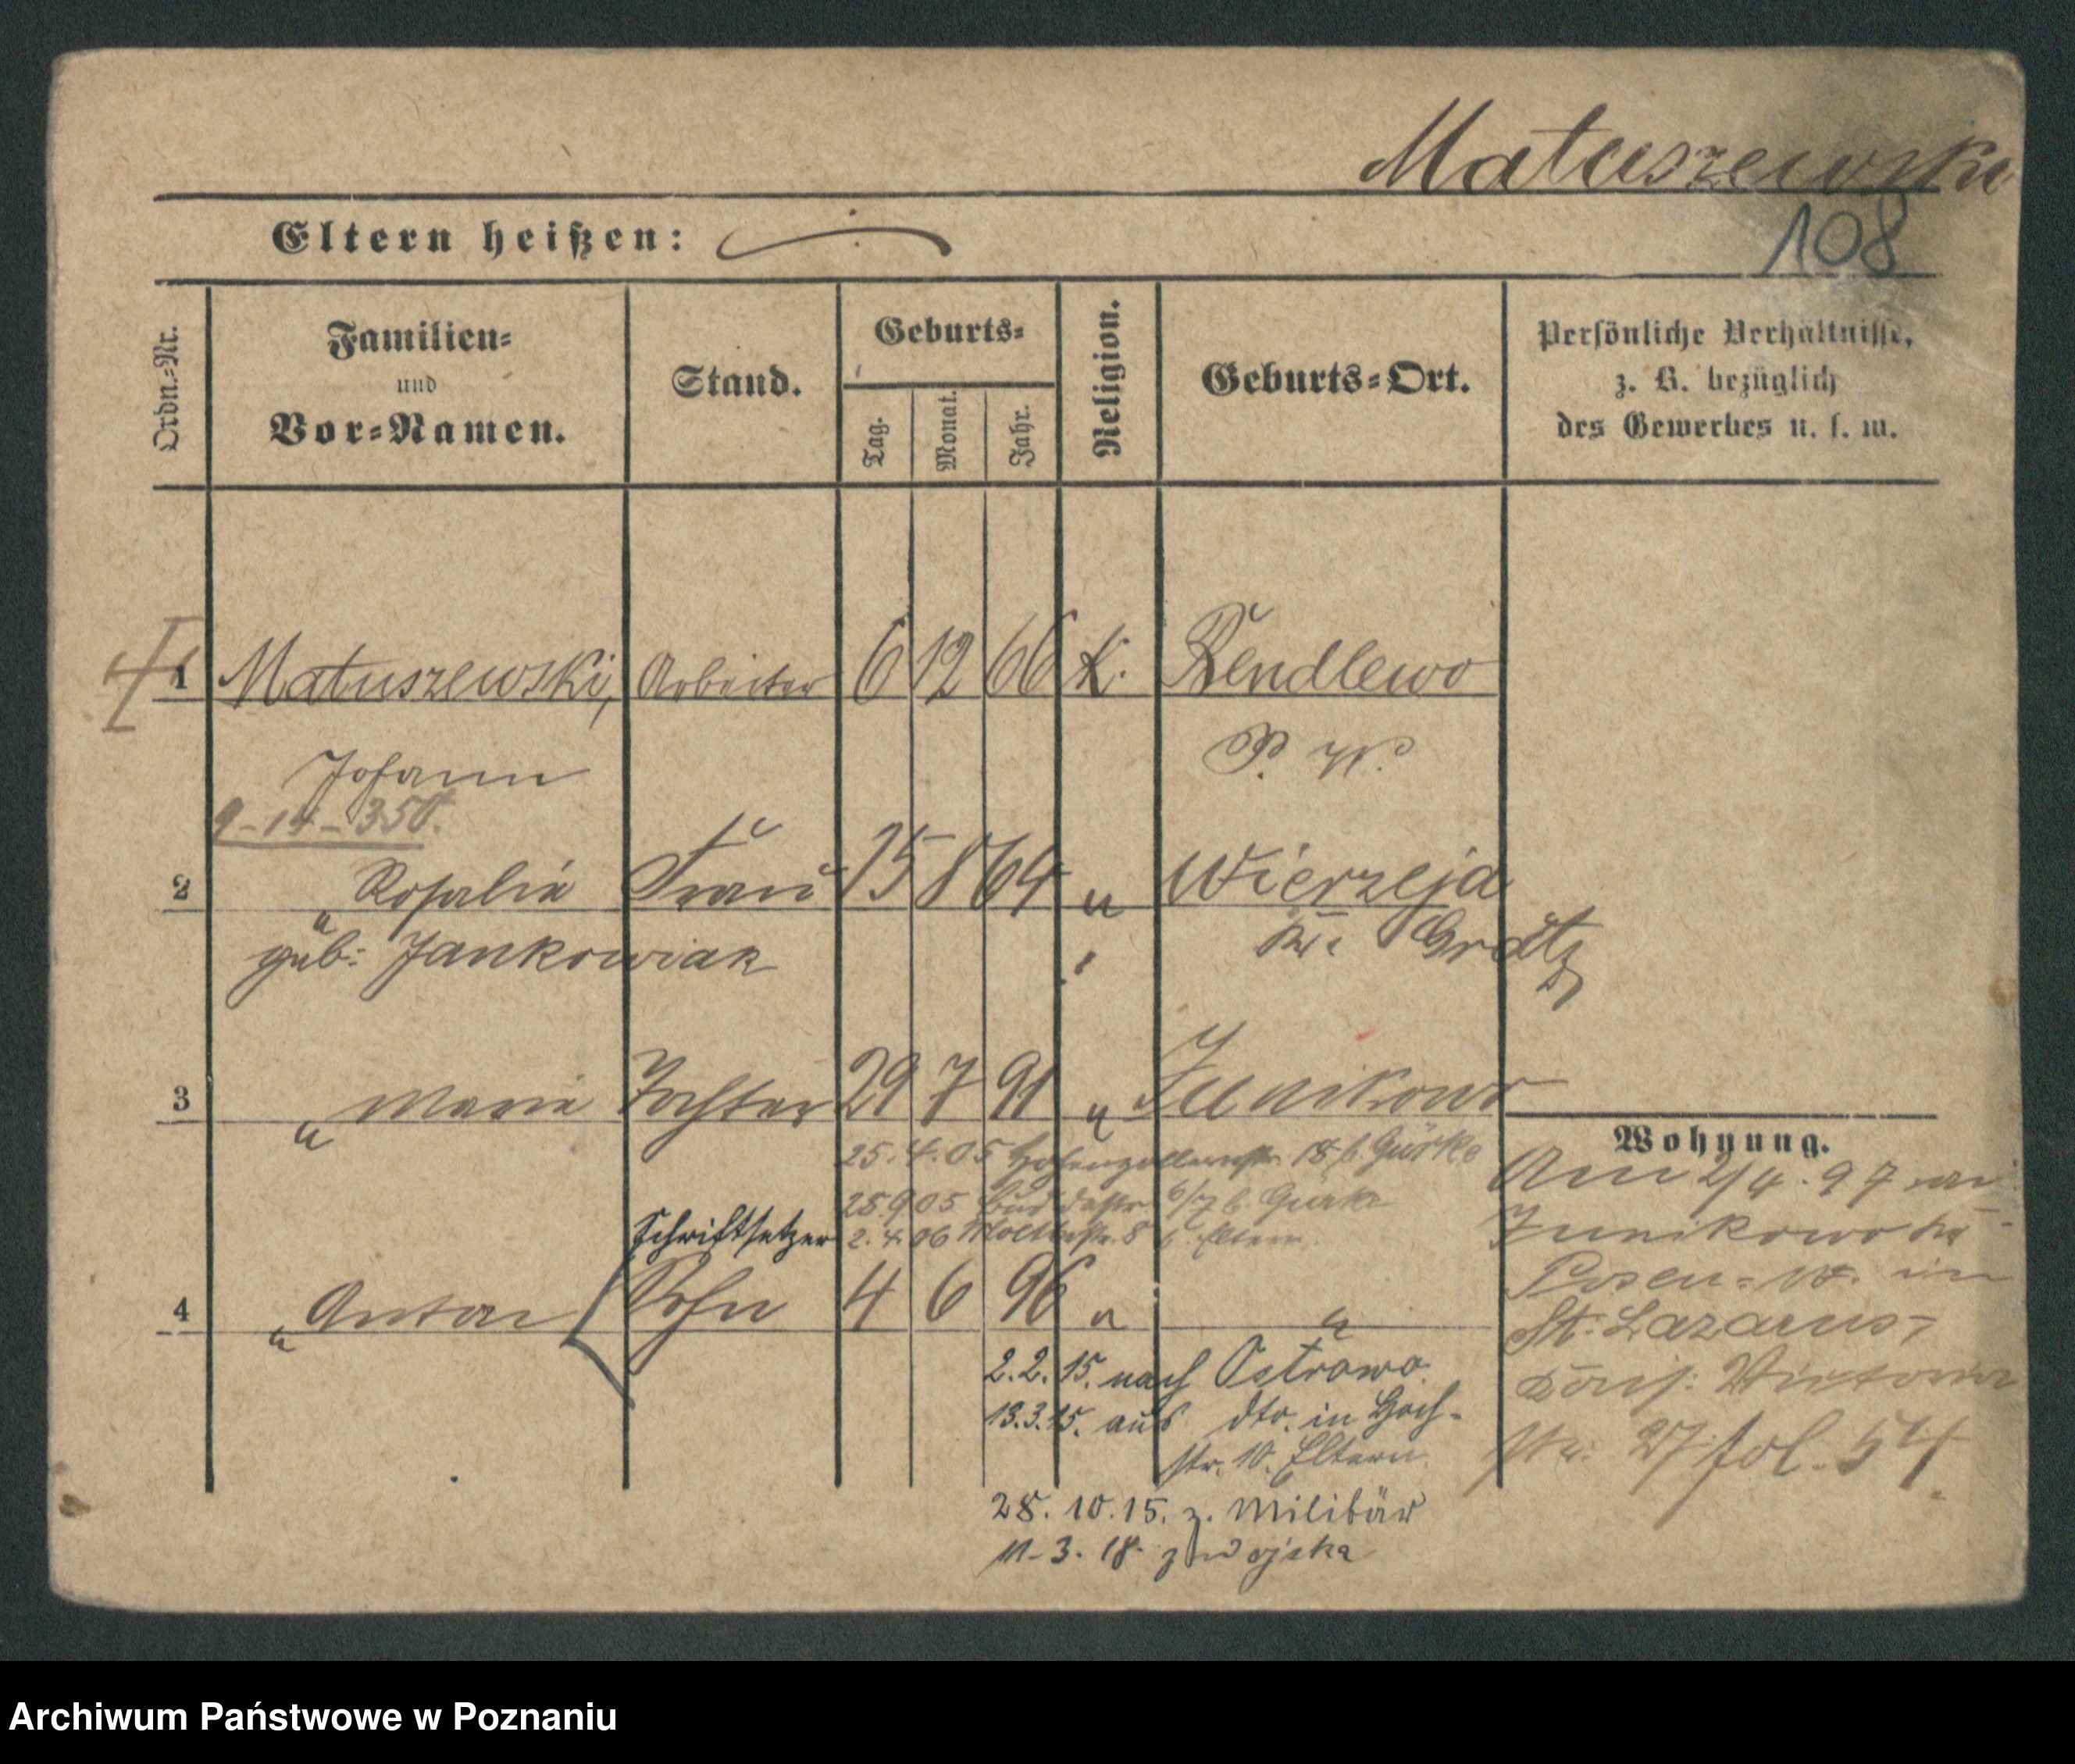 Matuszewski
108
Eltern heißen:
Ordn.-Nr.
Familien-
und
Vor-Namen.
Stand.
Geburts-
Tag.
Monat.
Jahr.
Religion.
Geburts-Ort.
Persönliche Verhältnisse,
z. B. bezüglich
des Gewerbes u. s. w.
1 Matuszewski, Arbeiter 6 12 66 K. Bendlewo
Johann P. W.
9-14-350.
2 " Rosalie Frau 15 8 64 " Wierzeja
geb: Jankowiak Kr. Grätz
3 " Marie Tochter 29 7 91 " Junikowo
25.4.05 Hohenzollernstr. 18 b. Gürke
25.9.05 6/7 b. Gürke
Schriftsetzer 2.4.06 Moltkestr. 8 b. Eltern.
4 " Anton Sohn 4 6 96 " "
2.2.15. nach Ostrowo.
13.3.15. aus dto. in Hoch-
str. 10. Eltern.
28.10.15. z. Militär
11-3.18. z wojska
Wohnung.
Am 2/4.97 aus
Junikowo Kr.
Posen-W. in
St. Lazarus,
Victoria
str. 27 fol. 54
Archiwum Państwowe w Poznaniu